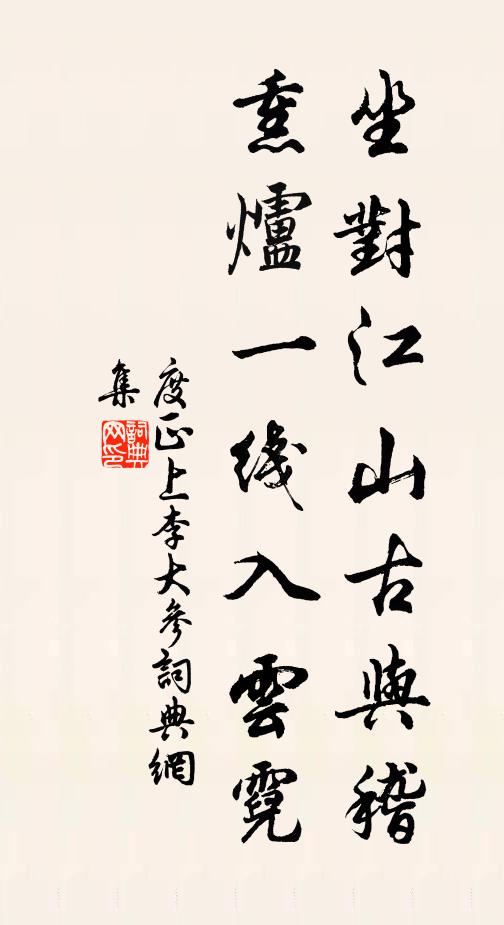 坐對江山古與稽
熏爐一线入雲霓
度正上李大參詞典網
集
詞典
网印